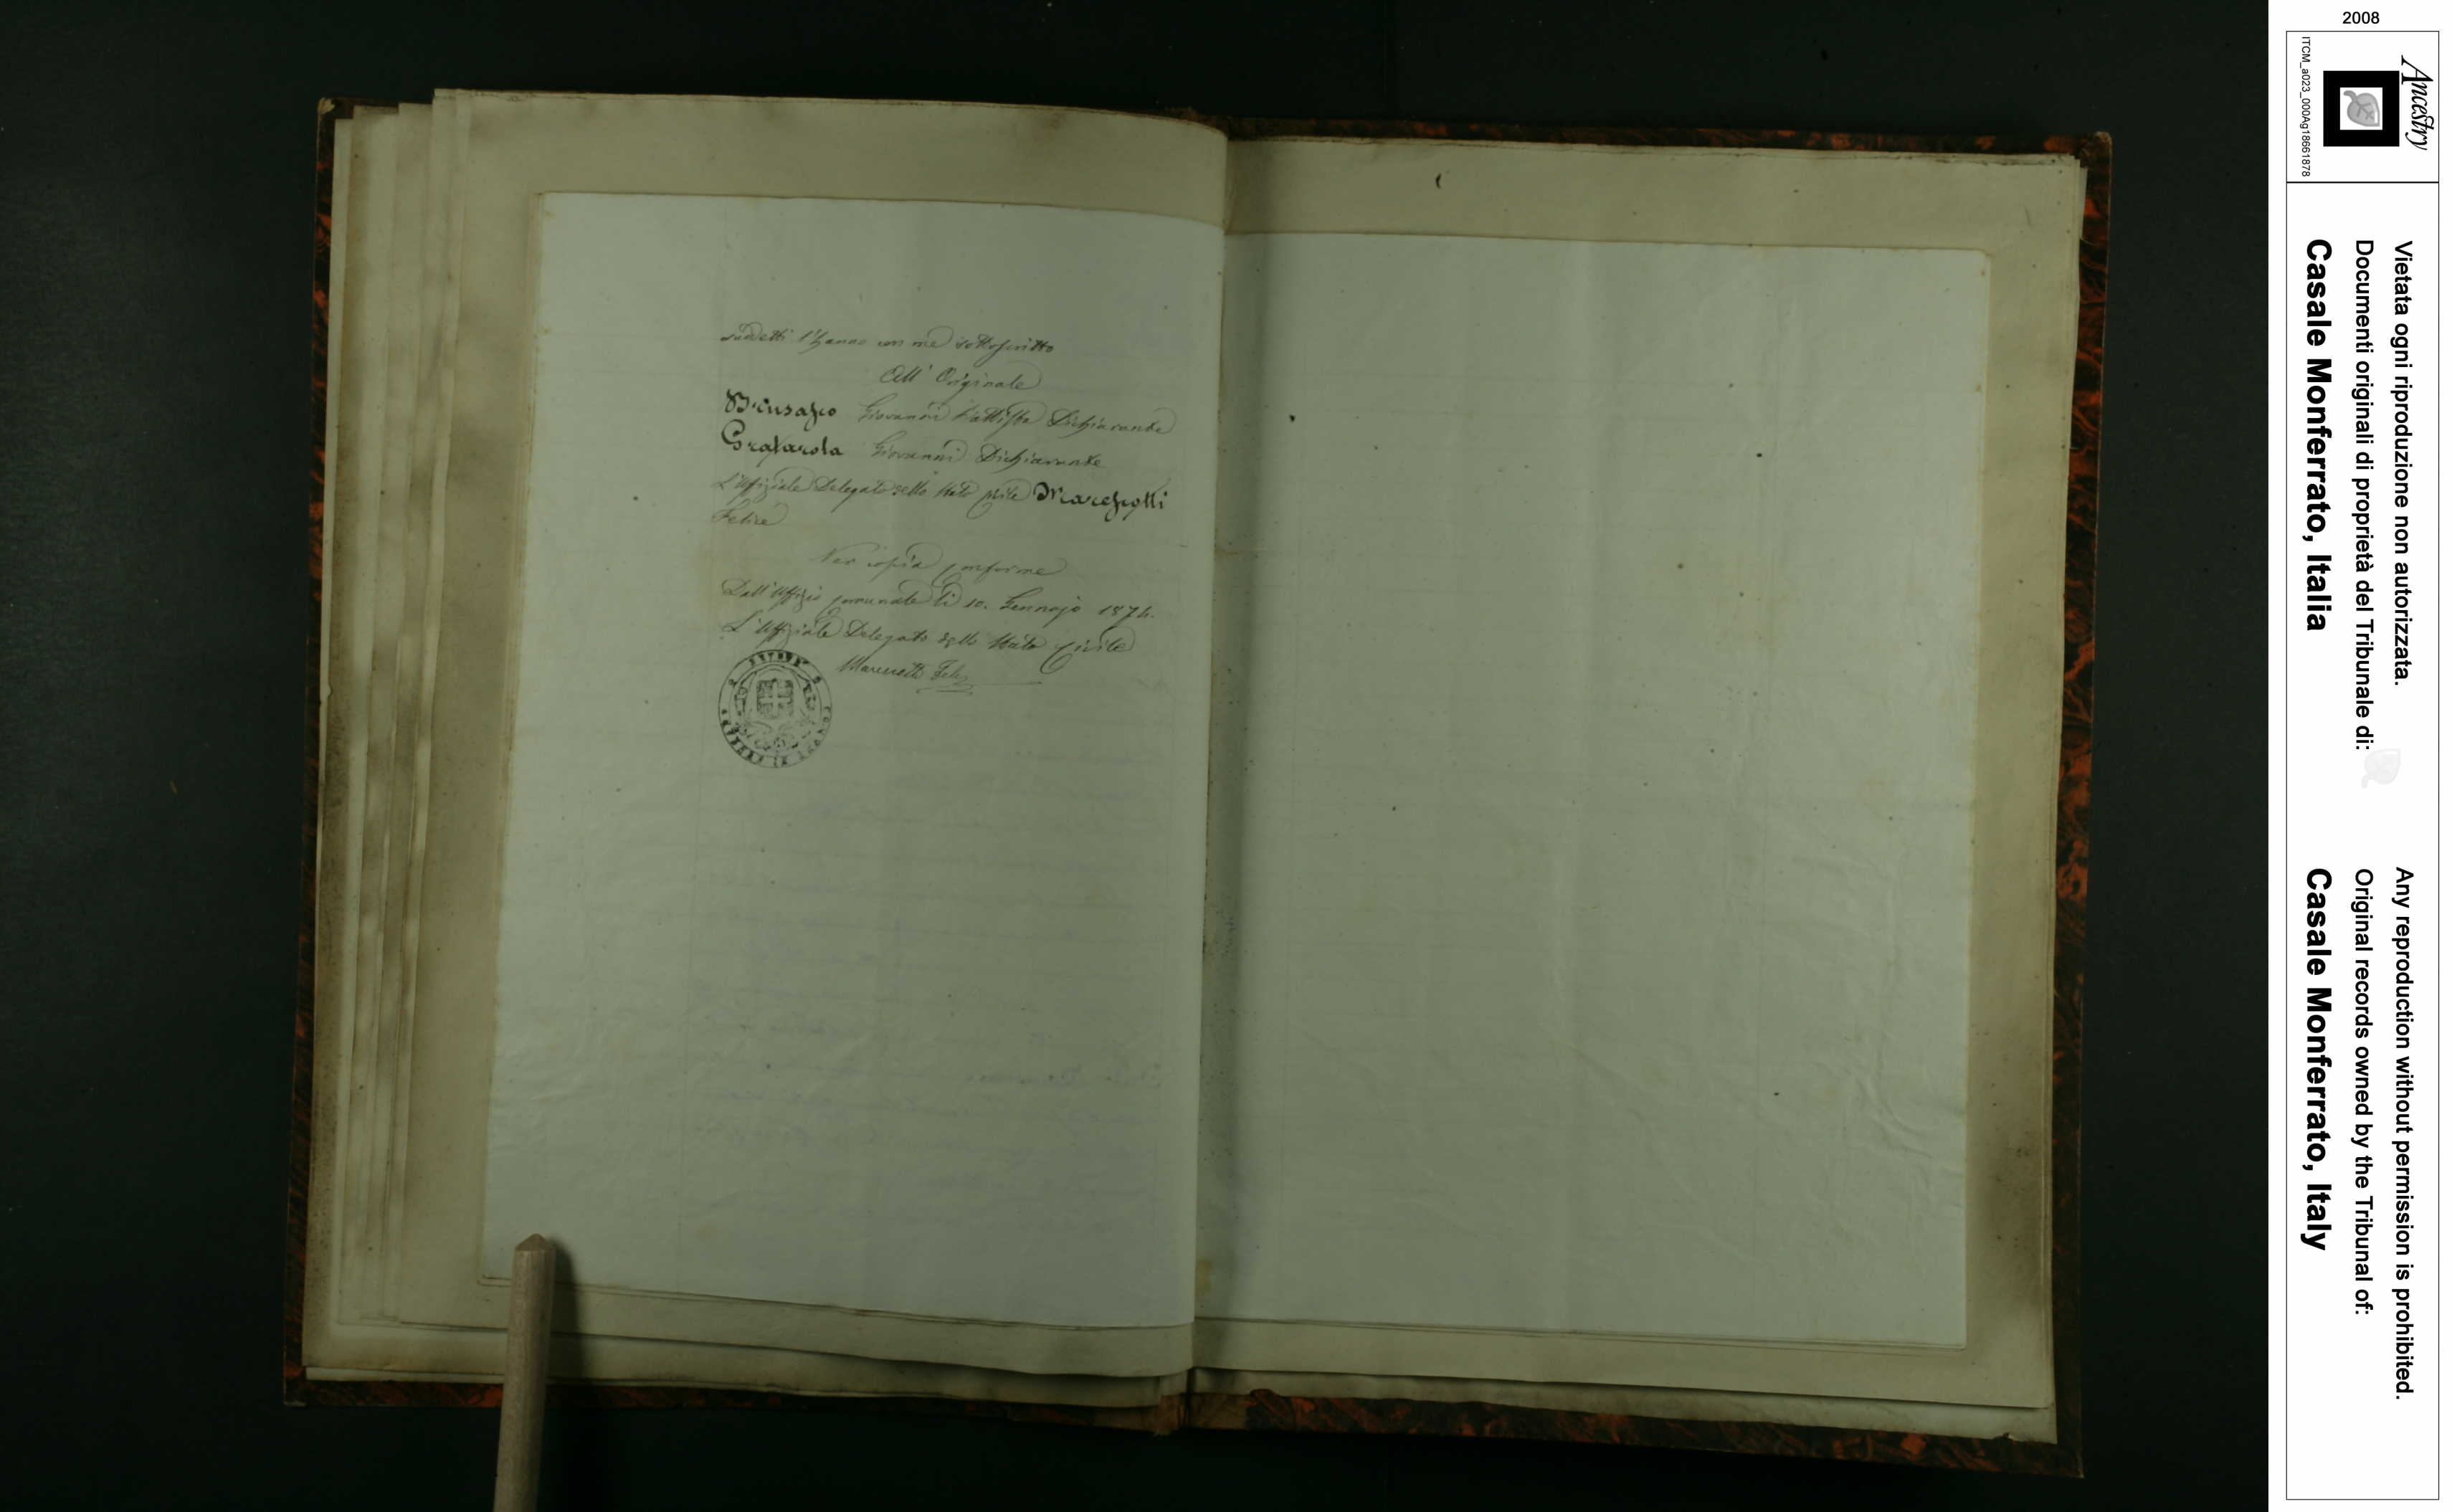 suddetti l'hanno con me sottoscritto
All' Originale
Brusasco Giovanni Battista Dichiarante
Giovanni Dichiarante
L'Uffiziale Delegato dello Stato Civile Marescotti
Felice
Per copia conforme
Dall'Uffizio comunale li 10. Gennajo 1874.
L'Uffiziale Delegato dello Stato Civile
Marescotti Felice
2008
Ancestry
ITCM_a023_000Ag18661878
Vietata ogni riproduzione non autorizzata.
Documenti originali di proprietà del Tribunale di:
Casale Monferrato, Italia
Any reproduction without permission is prohibited.
Original records owned by the Tribunal of:
Casale Monferrato, Italy